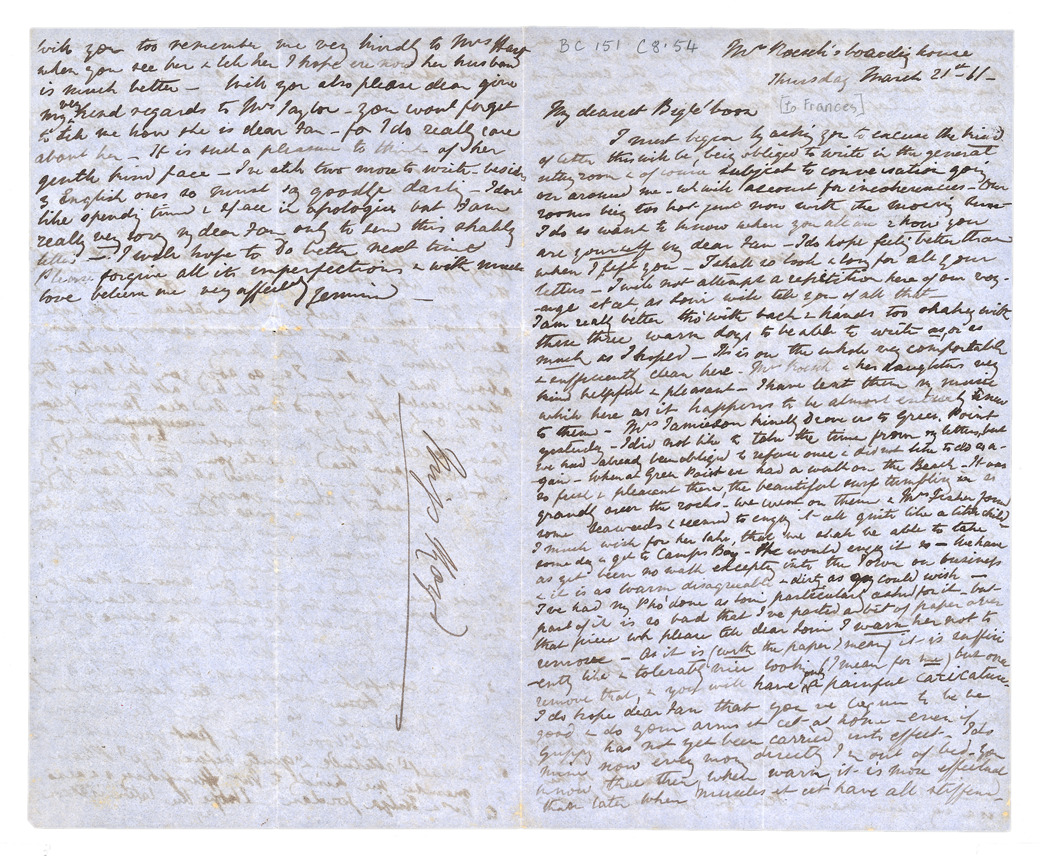 BC 151 C8.54
Mrs Roesch's boarding house
Thursday March 21st 61 -
[to Frances]
My dearest
I must begin by asking you to excuse the kind
of letter this will be, being obliged to write in the general
sitting room & of course subject to conversation going
on around me - wh will account for incoherences - Our
rooms being too hot just now with the morning sun -
I do so want to know when you all are & how you
are yourself my dear Fan - I do hope feeling better than
when I left you - I shall so look & long for all your
letters - I will not attempt a repetition here of our voy-
-age et cet as Louie will tell you of all that
I am really better tho' with back & hands too shakey with
these three warm days to be able to write as, or as
much as I hoped - It is on the whole very comfortable
& sufficiently clean here - Mrs Roesch & her daughters very
kind helpful & pleasant - I have lent them my music
while here as it happens to be almost entirely new
to them - Mrs Jamieson kindly drove us to Green Point
yesterday - I did not like to take the time from my letters, but
we had already been obliged to refuse once & did not like to do so a-
gain - When at Green Point we had a walk on the Beach - It was
so fresh & pleasant there, the beautiful surf tumbling in so
grandly over the rocks - we went on them & Mrs found
some Seaweeds & seemed to enjoy it all quite like a little child
I much wish for her sake, that we shall be able to take
some day & get to Camps Bay - She would enjoy it so - We have
as yet been no walk excepting into the Town on business
& it is as warm disagreeable & dirty as you could wish -
I've had my Pho' done as Loui particularly asked for it - but
part of it is so bad that I've pasted a bit of paper over
that piece wh please tell dear Loui I warn her not to
remove - As it is (with the paper) mean, it is suffici
-ently like & tolerably nice looking (I mean for me) but once
remove that, & you will have only a painful caricature
I do hope dear Fan that you 've begun to be
good & do your arms et cet at home - even if
Guppy has not yet been carried into effect - I do
mine now every mong directly I'm out of bed - You
know that then, when warm it is more effectual
than later when muscles et cet have all stiffen-

will you too remember me very kindly to Mrs Hart
when you see her & tell her I hope ere now her husband
is much better - Will you also please dear give
my very kind regards to Mrs Taylor - you wont forget
to tell me how she is dear Fan - for I do really care
about her - It is such a pleasure to think of her
gentle kind face - I've still two more to write - besides
3 English ones so must say goodbye darlg - I dont
like spendg time & space in apologies but I am
really very sorry my dear Fan only to send this shabby
letter - I will hope to do better next time
Please forgive all its imperfections & with much
love believe me very affectly
Jemima -